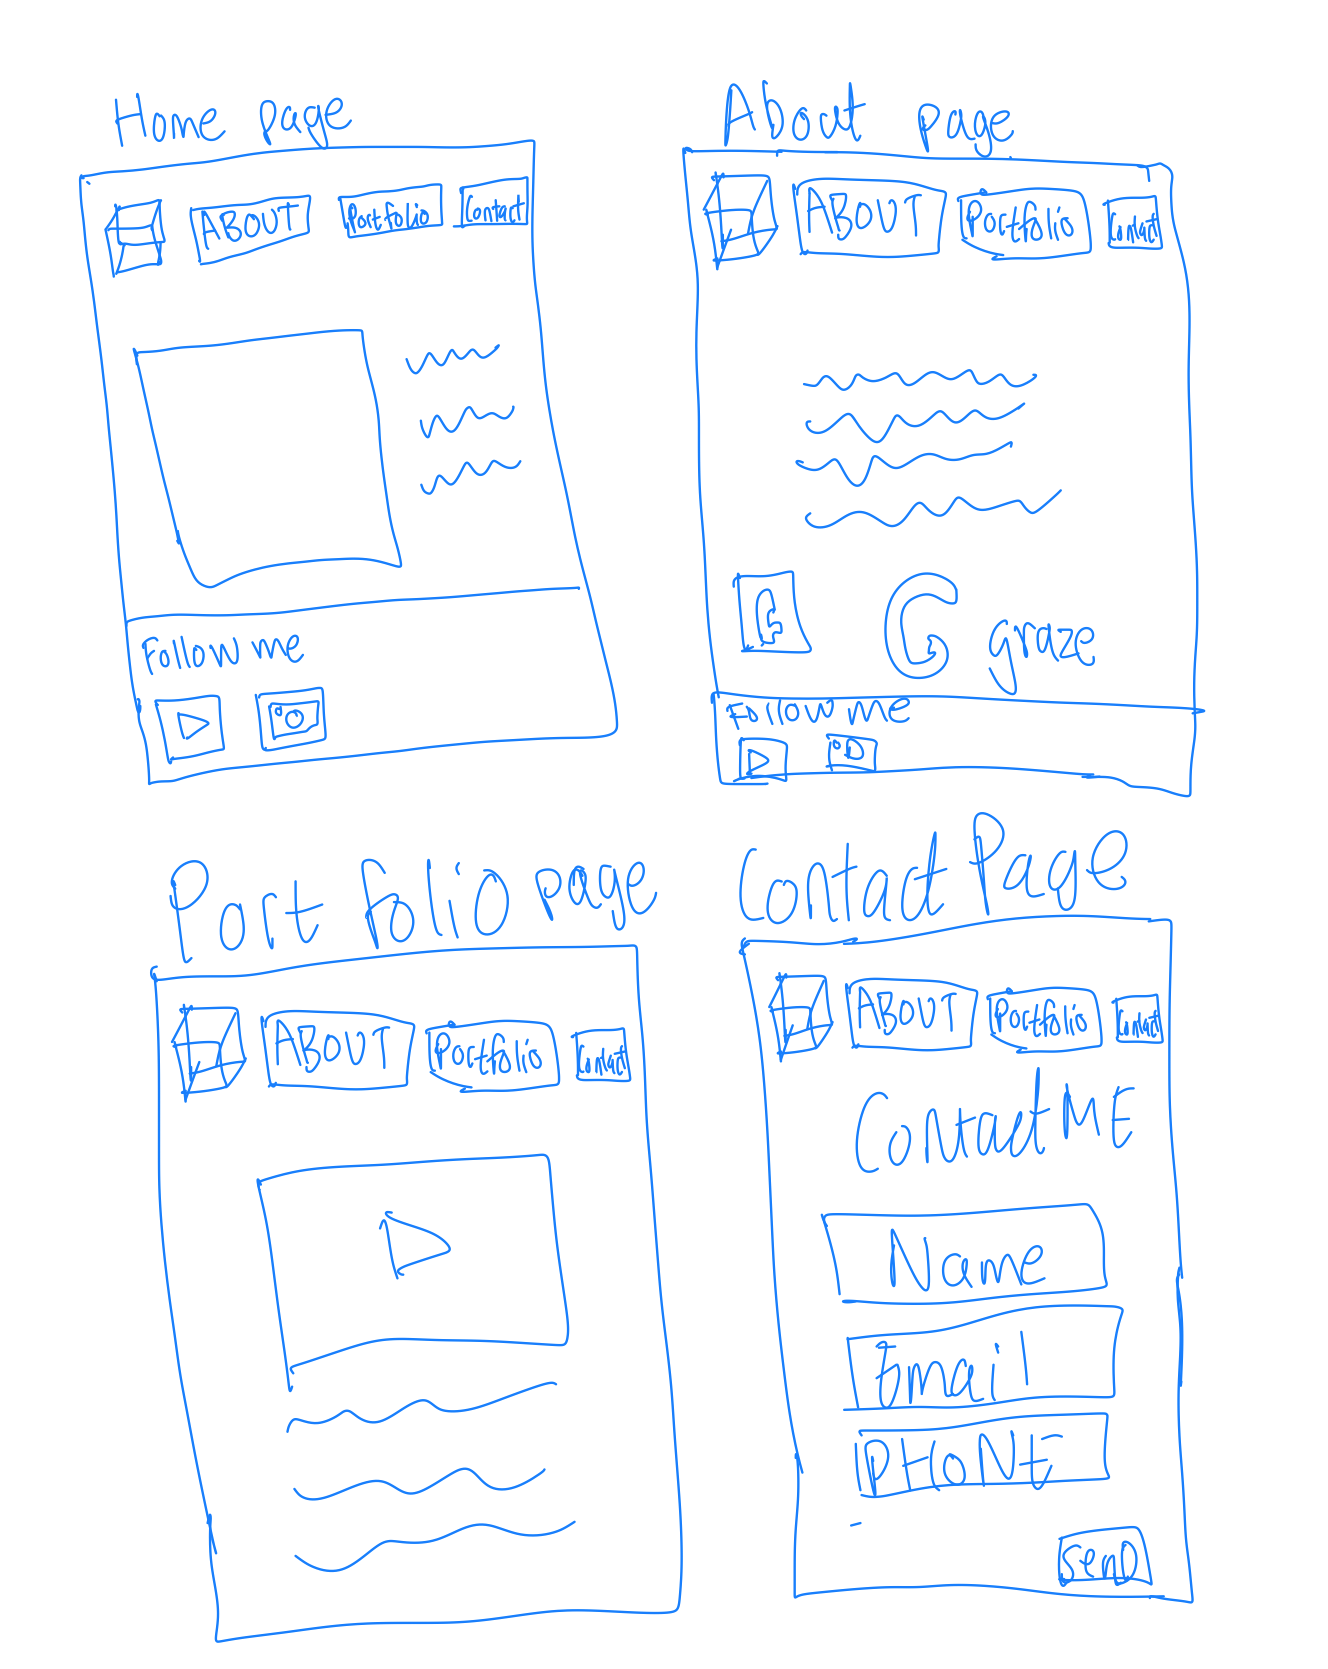 Home page
ABOUT Portfolio Contact
Follow me
About page
ABOUT Portfolio Contact
G G graze
Follow me
Portfolio page
ABOUT Portfolio Contact
Contact Page
ABOUT Portfolio Contact
Contact ME
Name
Email
PHONE
Send